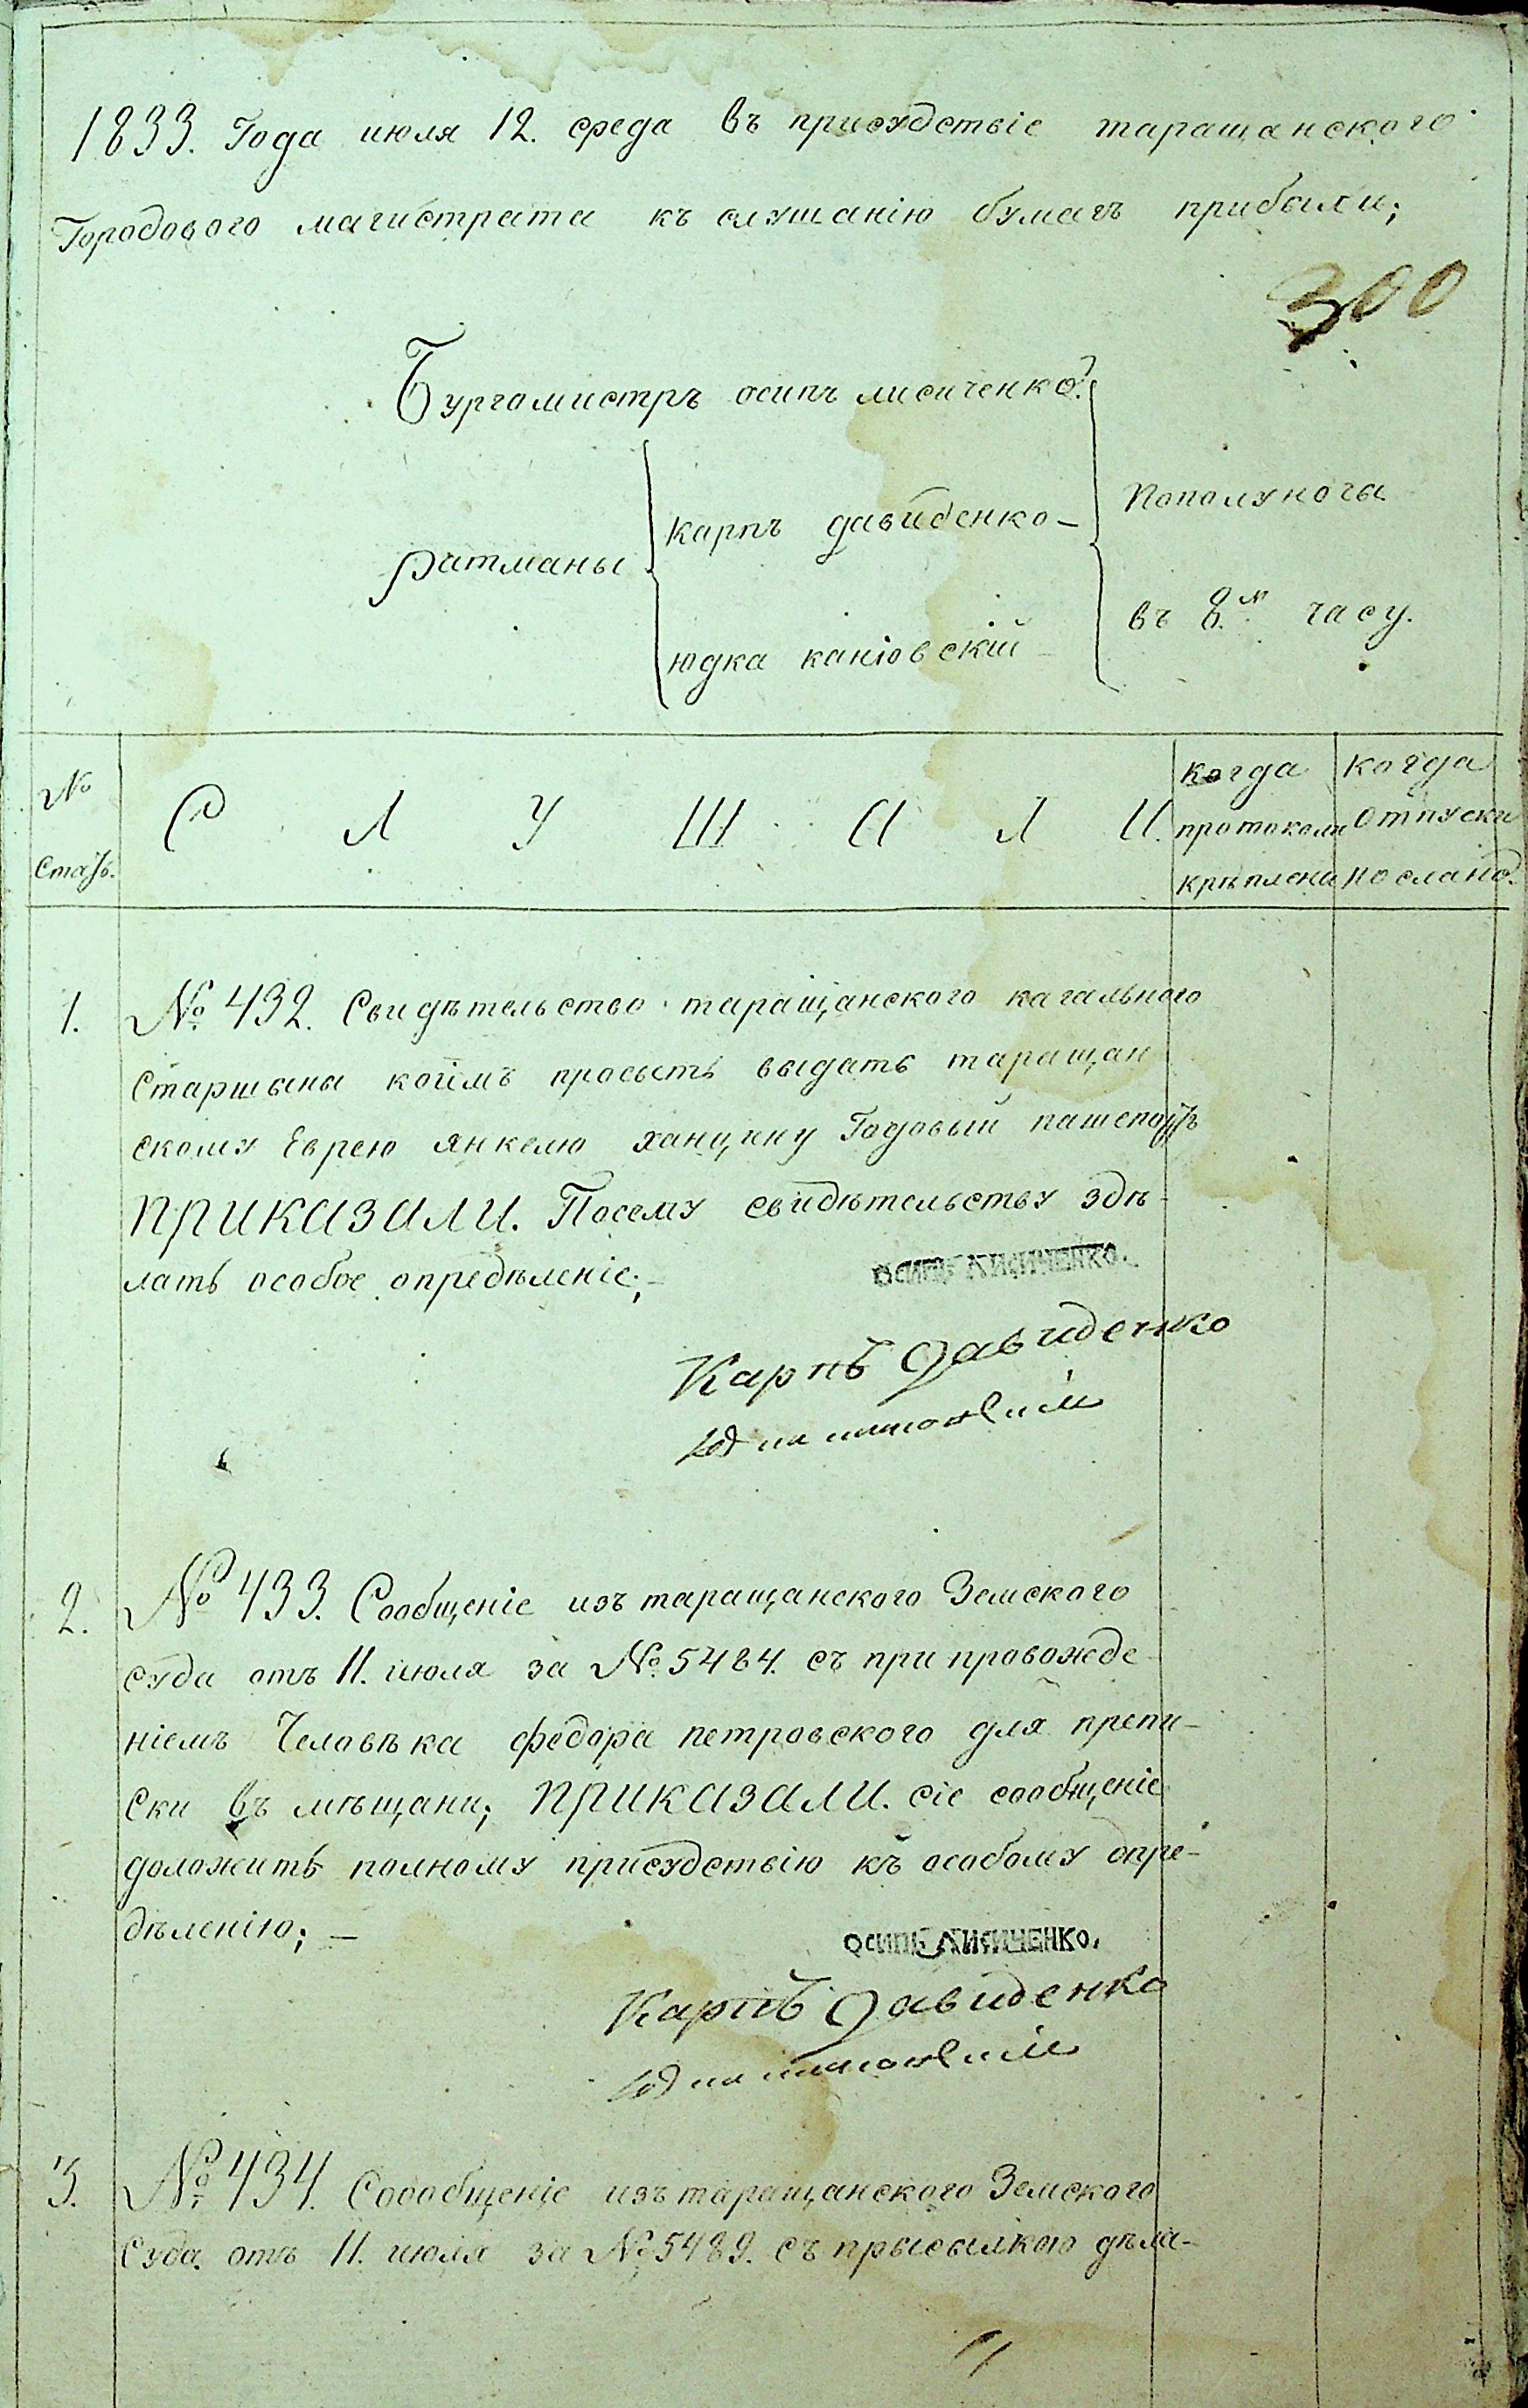 1833. Года июля 12. среда въ присудствіе таращанского
Городового магистрата къ слушанію бумагъ прибыли;
300
Бургомистръ осипъ лисиченко.
ратманы
карпъ давиденко
юдка каніовскій
Пополуночы
въ 8.м часу.
№ стать.
С Л У Ш А Л И.
когда протоколи крѣплени
когда отпуски послано.
1. № 432. Свидѣтельство таращанского кагального
старшыны коимъ просыть выдать таращан
скому Еврею янкелю ханцину Годовый пашепортъ
ПРИКАЗАЛИ. Посему свидѣтельству здѣ-
лать особое опредѣленіе; —
осипъ лисиченко.
Карпъ давиденко
2. № 433. Сообщеніе изъ таращанского Земского
суда отъ 11. июля за № 5484. съ при провожде
ніемъ Человѣка федора петровского для препи-
ски въ мѣщани; ПРИКАЗАЛИ. сіе сообщеніе
доложить полному присудствію къ особому опре-
дѣленію; —
осипъ лисиченко.
Карпъ давиденко
3. № 434. Соообщеніе изъ таращанского Земского
Суда отъ 11. июля за № 5489. съ прысылкою дѣла-